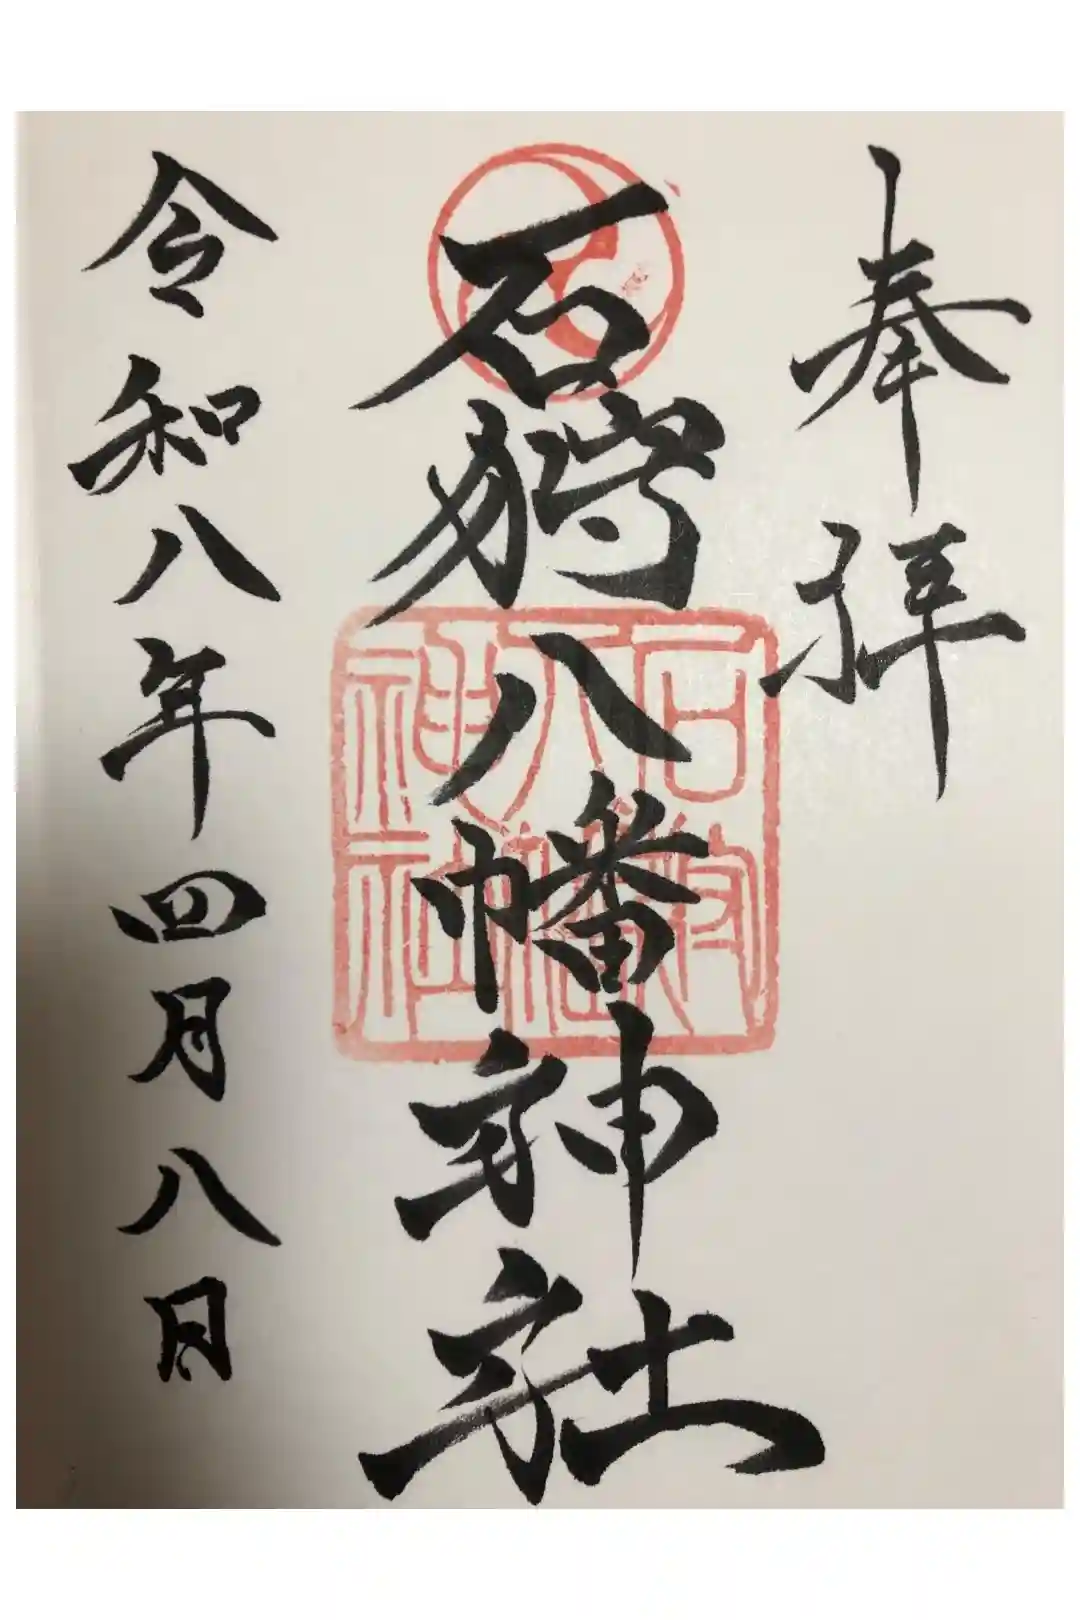 奉拝
石狩八幡神社
令和八年四月八日
石狩
八幡
神社